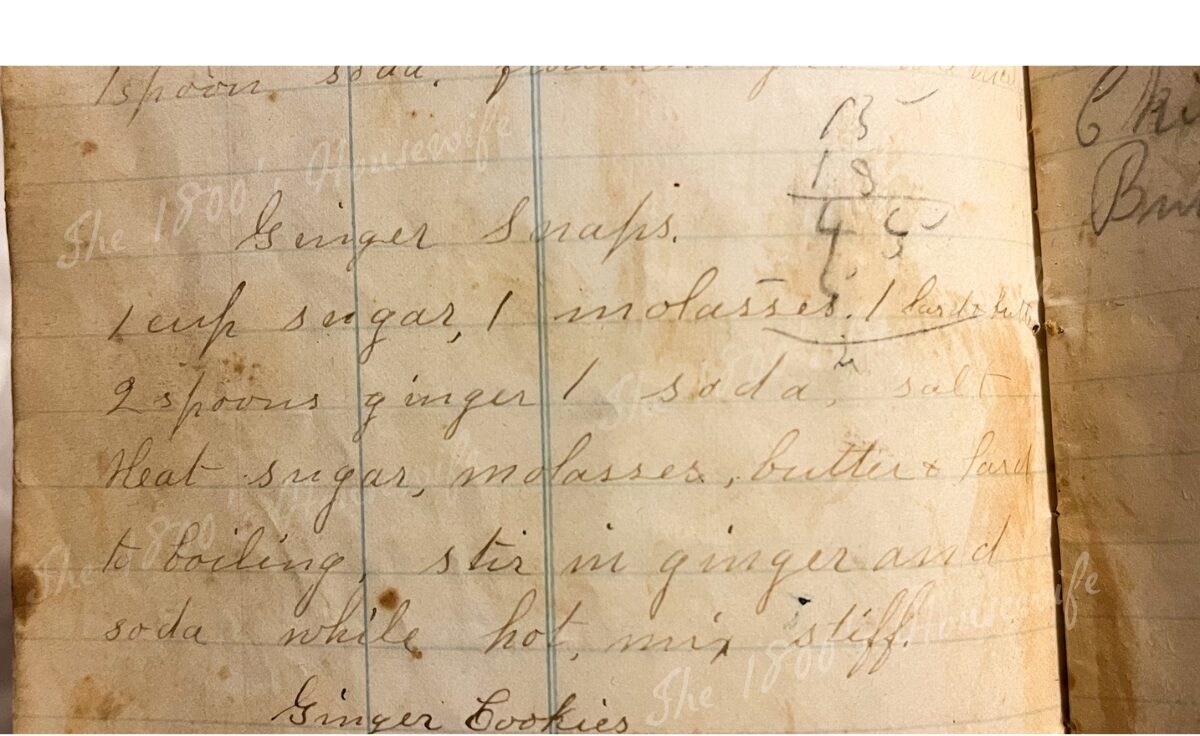 1 spoon soda.
Ginger Snaps.
1 cup sugar, 1 molasses. 1 lard & butter
2 spoons ginger 1 soda, salt
Heat sugar, molasses, butter & lard
to boiling, stir in ginger and
soda while hot, mix stiff.
Ginger Cookies
13
18
45
The 1800's Housewife
The 1800's Housewife
The 1800's Housewife